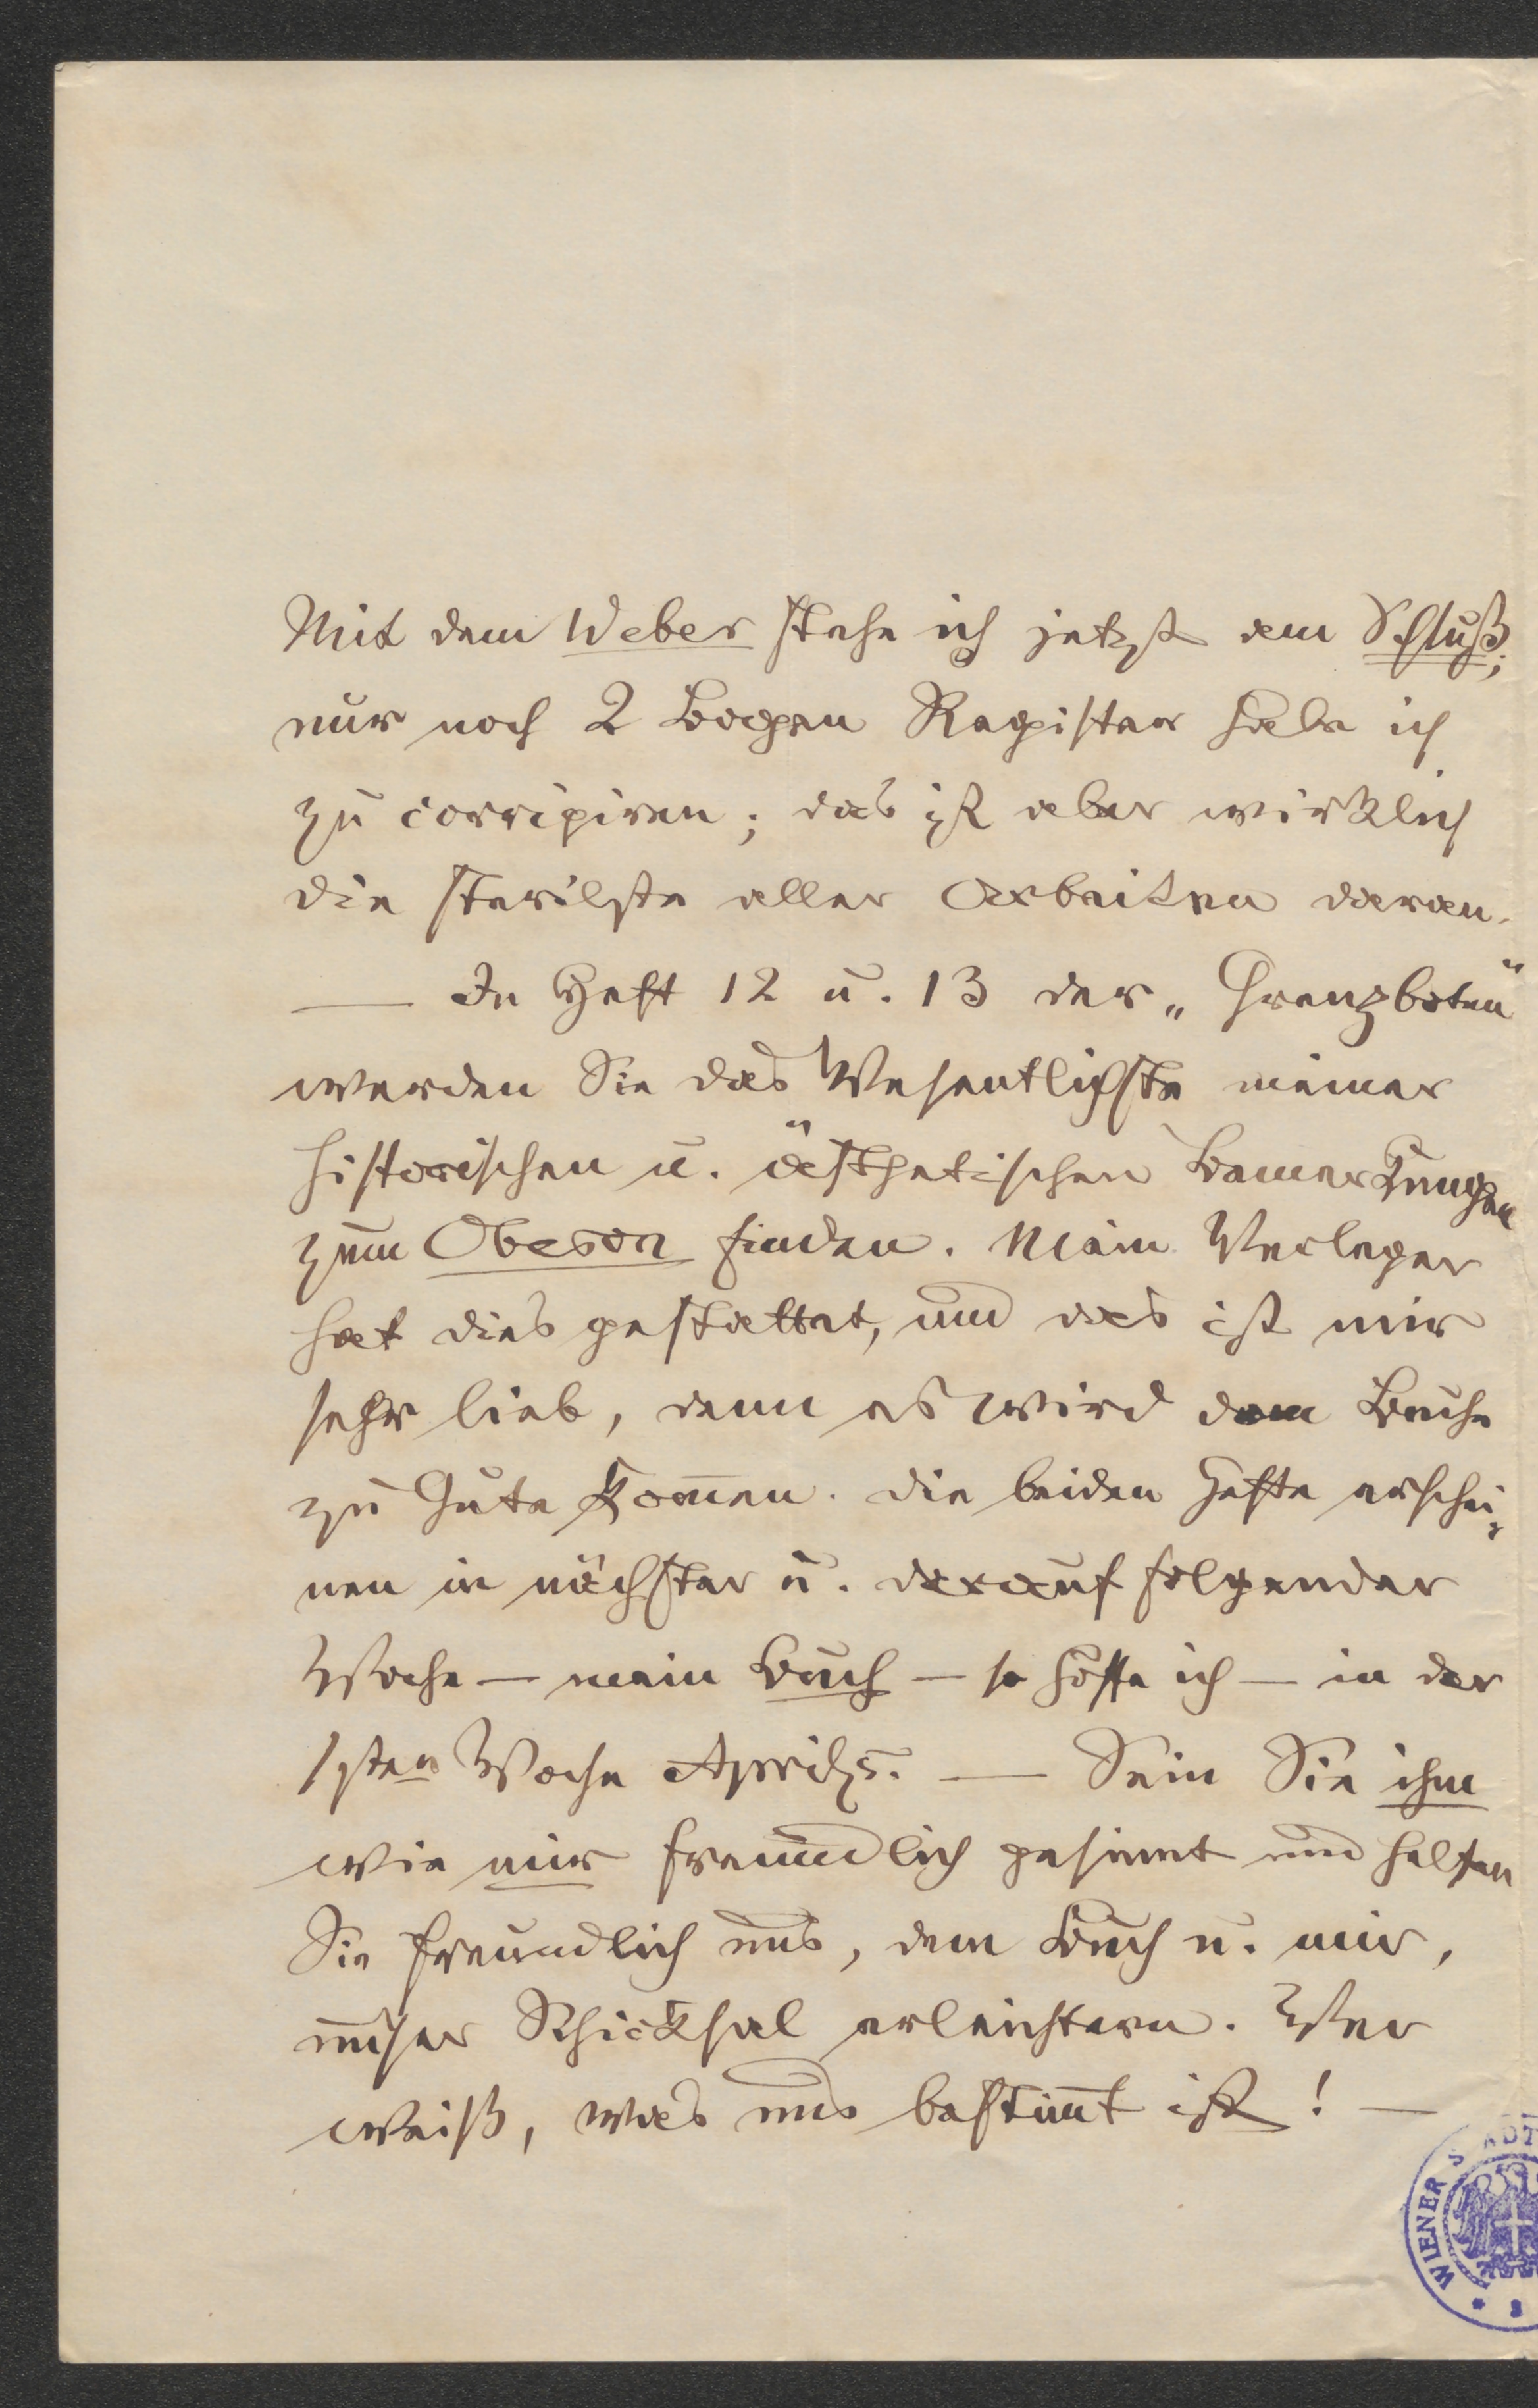 Mit dem Weber stehe ich jetzt am Schluß;
nur noch 2 Bogen Register habe ich
zu corrigiren; das ist aber wirklich
die sterilste aller Arbeiten daran.
— In Heft 12 u. 13 der „Grenzboten“
werden Sie das Wesentlichste meiner
historischen u. ästhetischen Bemerkungen
zum Oberon finden. Mein Verleger
hat dies gestattet, und das ist mir
sehr lieb, denn es wird dem Buche
zu Gute kom̄en. Die beiden Hefte erschei-
nen in nächster u. darauf folgender
Woche — mein Buch — so hoffe ich — in der
1sten Woche Aprils. — Sein Sie ihm
wie mir freundlich gesinnt und helfen
Sie freundlich uns, dem Buch u. mir,
unser Schicksal erleichtern. Wer
weiß, was uns bestim̄t ist! —
WIENER STADT